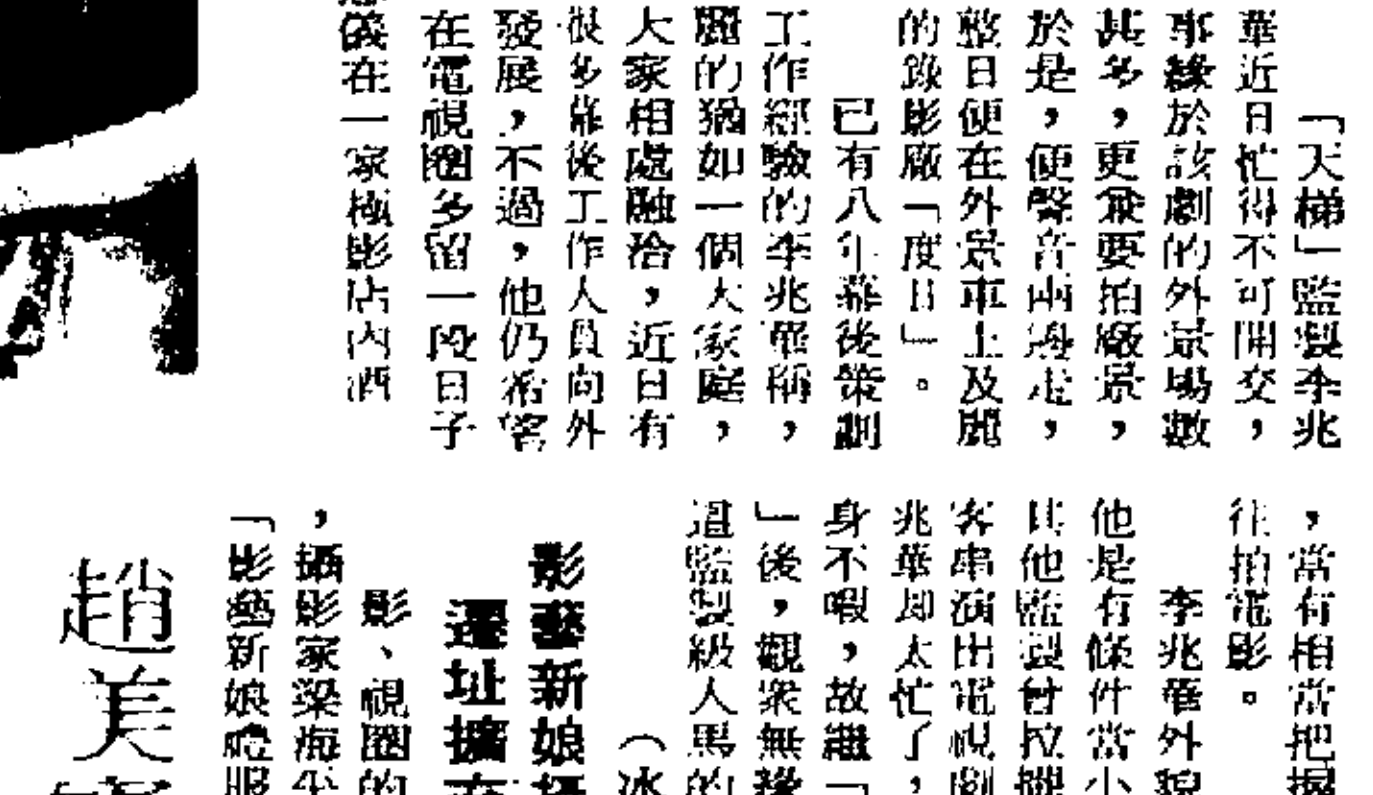 「天梯」監製李兆
華近日忙得不可開交，
事緣於該劇的外景場數
甚多，更兼要拍廠景，
於是，便聲音兩邊走，
整日便在外景車上及麗
的錄影廠「度日」。
已有八年幕後策劃
工作經驗的李兆華稱，
麗的猶如一個大家庭，
大家相處融洽，近日有
很多幕後工作人員向外
發展，不過，他仍希望
在電視圈多留一段日子
儀在一家極影店內酒
，當有相當把握
往拍電影。
李兆華外貌
他是有條件當小
其他監製曾拉攏
客串演出電視劇
兆華却太忙了，
身不暇，故繼「
」後，觀眾無緣
道監製級人馬的
（冰
影藝新娘
遷址擴
影、視圈的
，攝影家梁海
「影藝新娘禮服
趙美